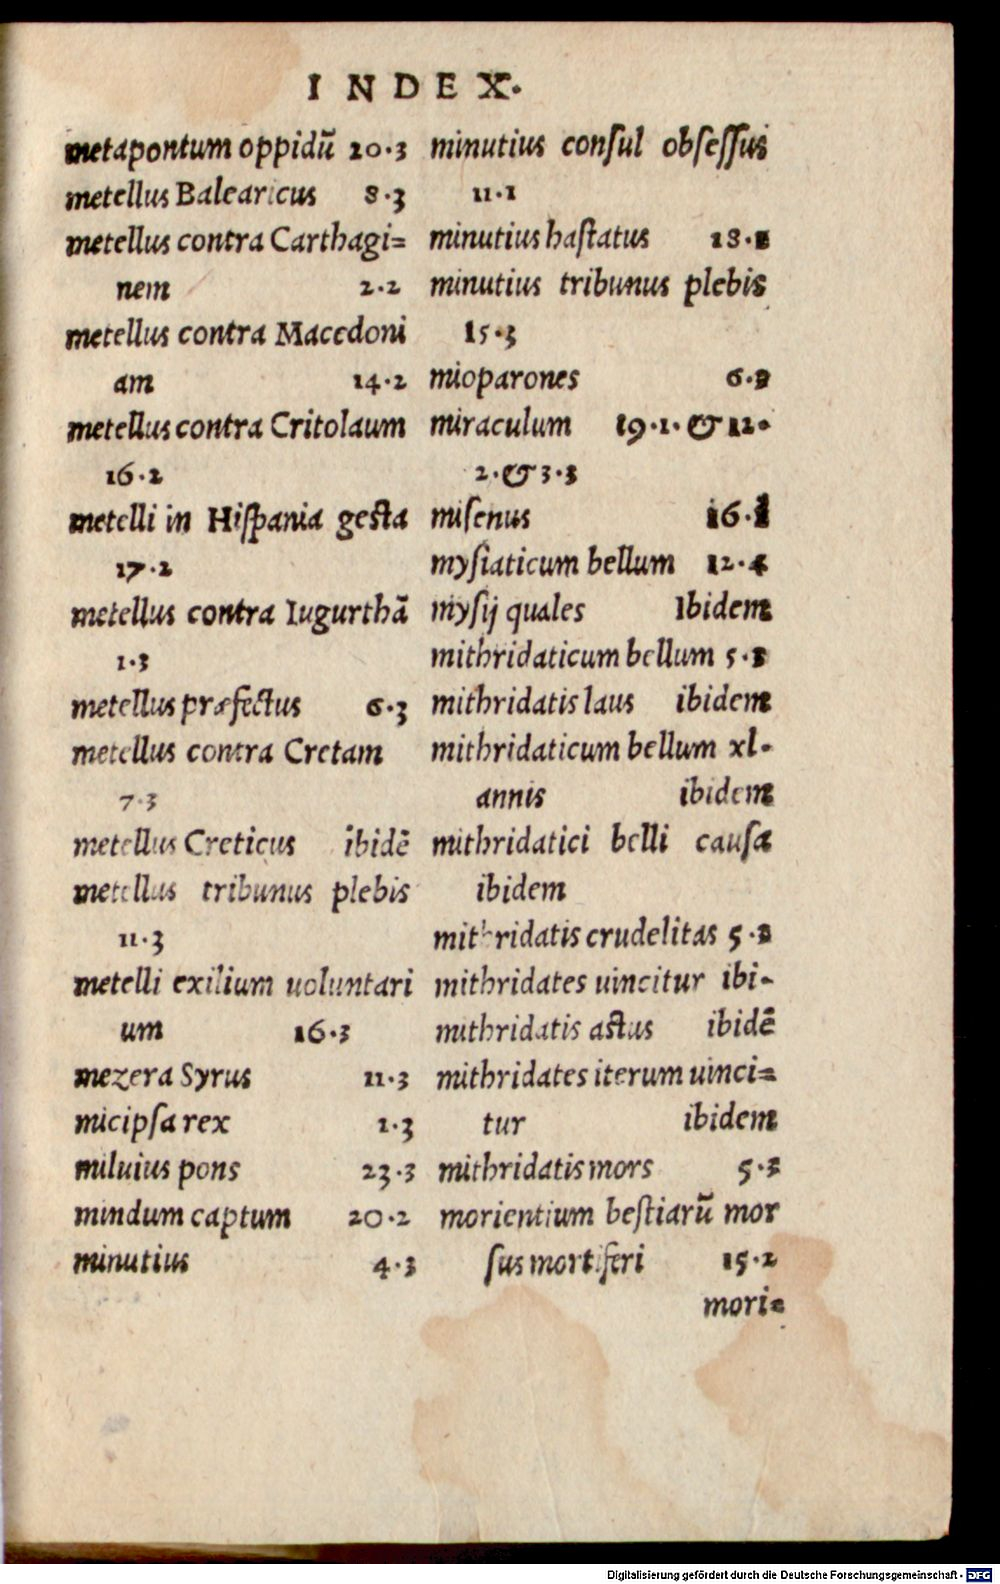 INDEX.
metapontum oppidũ 20.3
metellus Balearicus 8.3
metellus contra Carthagi=
nem 2.2
metellus contra Macedoni
am 14.2
metellus contra Critolaum
16.2
metelli in Hiſpania geſta
17.2
metellus contra Iugurthã
1.3
metellus præfectus 6.3
metellus contra Cretam
7.3
metellus Creticus ibidẽ
metellus tribunus plebis
11.3
metelli exilium uoluntari
um 16.3
mezera Syrus 11.3
micipſa rex 1.3
miluius pons 23.3
mindum captum 20.2
minutius 4.3
minutius conſul obſeſſus
11.1
minutius haſtatus
minutius tribunus plebis
15.3
mioparones
miraculum 19.1.& 12.
2.& 3.3
miſenus
myſiaticum bellum 12.4
myſij quales Ibidem
mithridaticum bellum
mithridatis laus ibidem
mithridaticum bellum xl.
annis ibidem
mithridatici belli cauſa
ibidem
mithridatis crudelitas
mithridates uincitur ibi-
mithridatis aſtus ibidẽ
mithridates iterum uinci=
tur ibidem
mithridatis mors 5.3
morientium beſtiarũ mor
ſus mortiferi 15.2
mori=
Digitalisierung gefördert durch die Deutsche Forschungsgemeinschaft - DFG